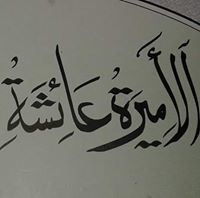 الأميرة عائشة